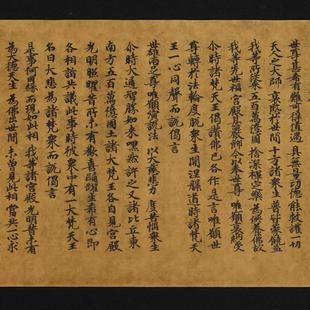 世尊甚希有 難可得值遇 具無量功德 能救護一切
天人之大師 哀愍於世間 十方諸衆生 普皆蒙饒益
我等所從來 五百萬億國 捨深禪定樂 為供養佛故
我等先世福 宮殿甚嚴飾 今以奉世尊 唯願哀納受
尒時諸梵天王偈讚佛已各作是言唯願世
尊轉於法輪度脫衆生開涅槃道時諸梵天
王一心同聲而說偈言
世雄兩足尊 唯願演說法 以大慈悲力 度苦惱衆生
尒時大通智勝如來默然許之又諸比丘東
南方五百萬億國土諸大梵王各自見宮殿
光明照曜昔所未有歡喜踊躍生希有心即
各相詣共議此事時彼衆中有一大梵天王
名曰大悲為諸梵衆而說偈言
是事何因緣 而現如此相 我等諸宮殿 光明昔未有
為大德天生 為佛出世間 未曾見此相 當共一心求